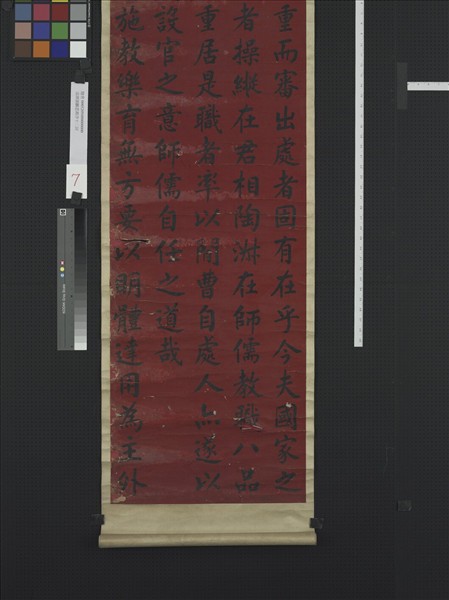 重而審出處者固有在乎今夫國家之
者操縱在君相陶淑在師儒教職八品
重居是職者率以閒曹自處人亦遂以
設官之意師儒自任之道哉
施教樂育無方要以明體達用為主外
7